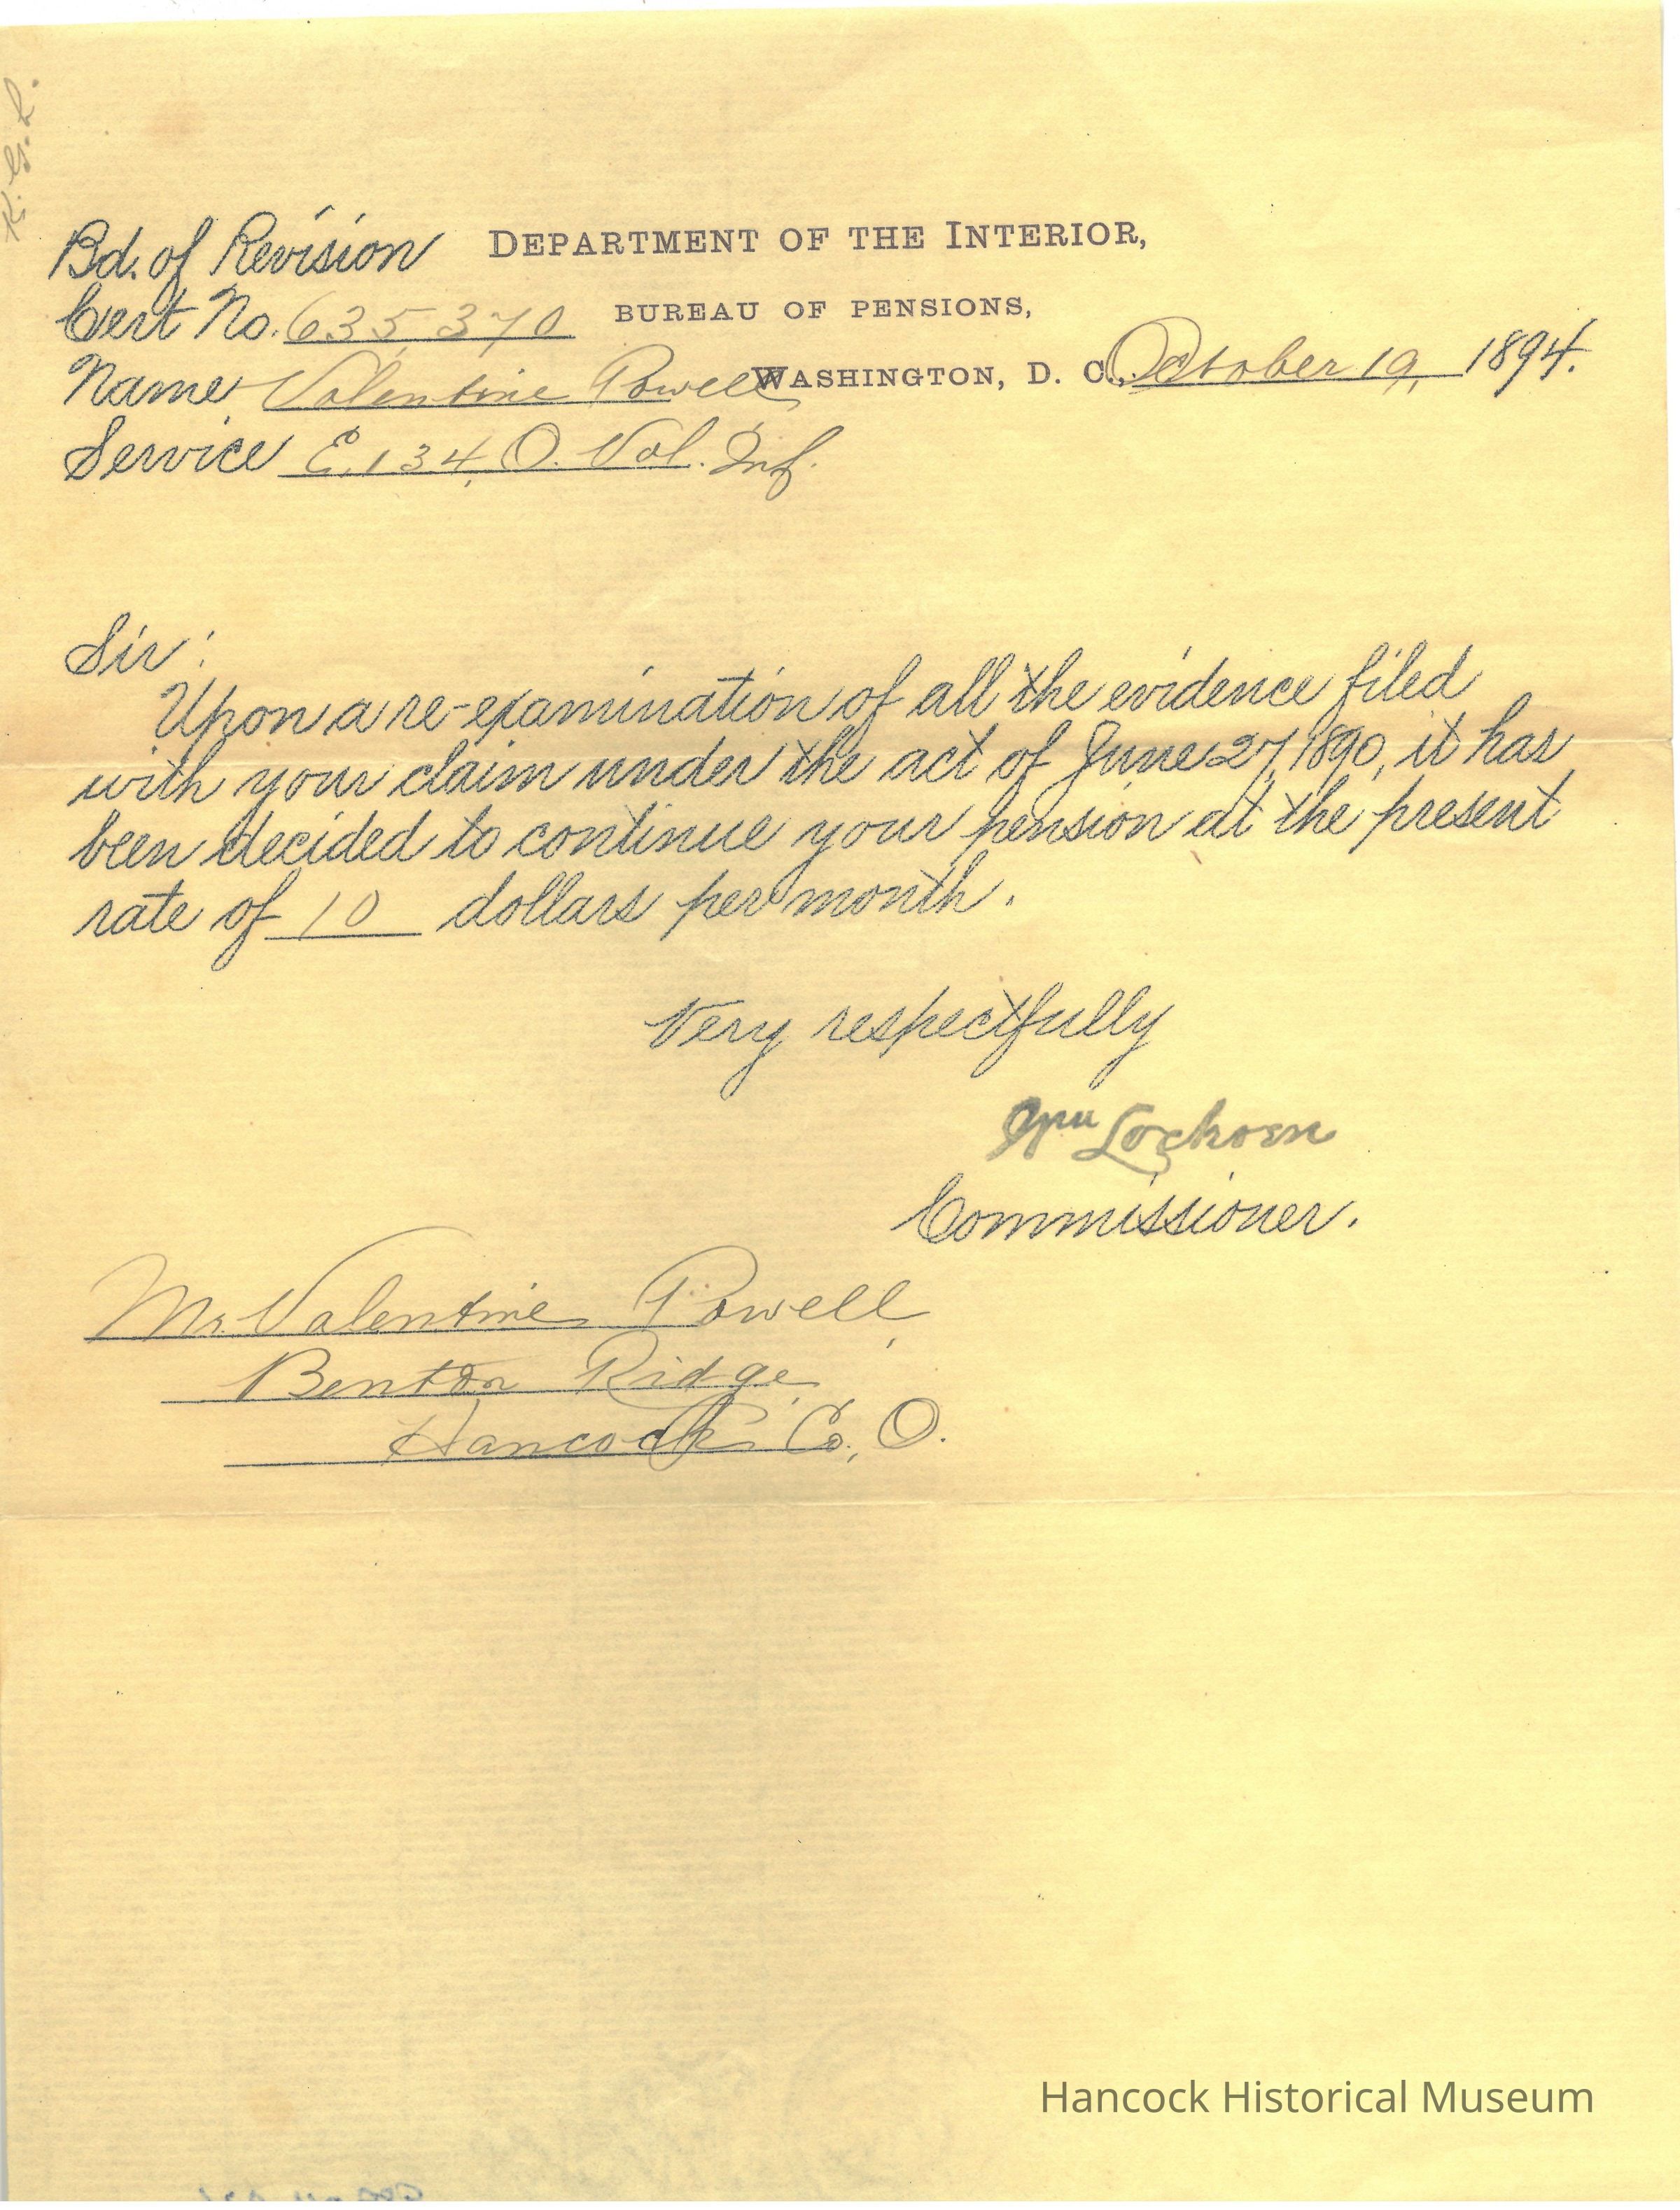 Bd. of Revision
DEPARTMENT OF THE INTERIOR,
Cert No. 635,370
BUREAU OF PENSIONS,
Name Valentine Powell
WASHINGTON, D. C., October 19, 1894.
Service E. 134, O. Vol. Inf.
Sir:
Upon a re-examination of all the evidence filed
with your claim under the act of June 27, 1890, it has
been decided to continue your pension at the present
rate of 10 dollars per month.
Very respectfully
Wm Lochren
Commissioner.
Mr. Valentine Powell,
Benton Ridge,
Hancock Co., O.
Hancock Historical Museum